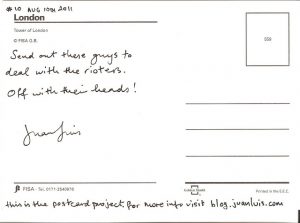 #10. AUG 10TH 2011
London
Tower of London
© FISA G.B.
559
Send out these guys to
deal with the rioters.
Off with their heads!
JuanLuis
FISA - Tel. 0171-2540976
Printed in the E.E.C.
this is the postcard project for more info visit blog.juanluis.com